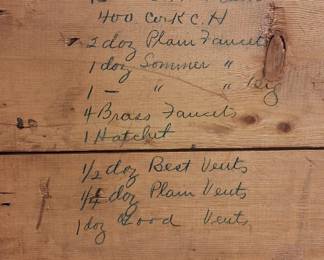 400 Cork C.H
2 doz Plain Faucets
1 doz Sommer "
1 — " " Big
4 Brass Faucets
1 Hatchet
1/2 doz Best Vents
1/4 doz Plain Vents
1 doz Good Vents